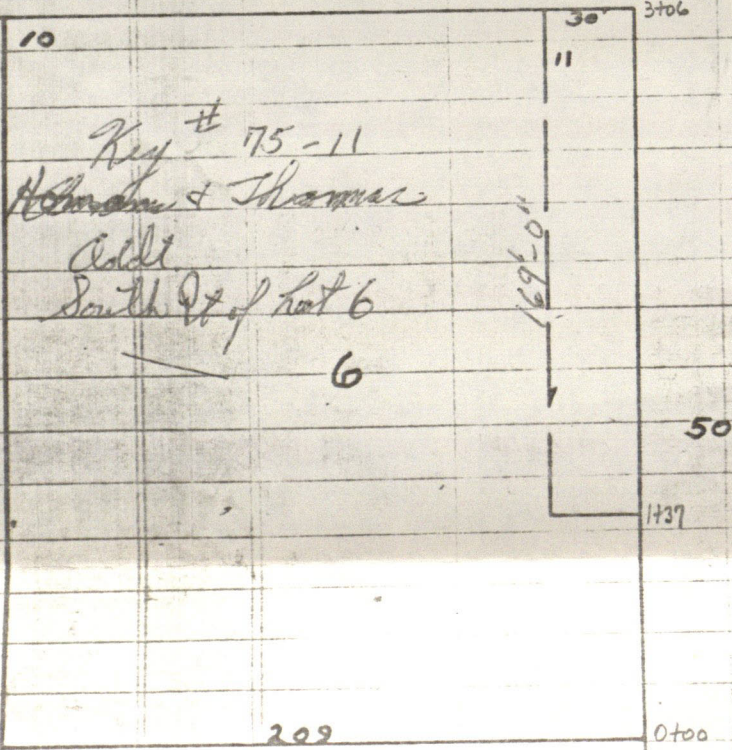 10
30' 3+06
11
Key # 75-11
& Thomas
Addt
South Pt of Lot 6
169'-0"
6
50
1+37
209
0+00